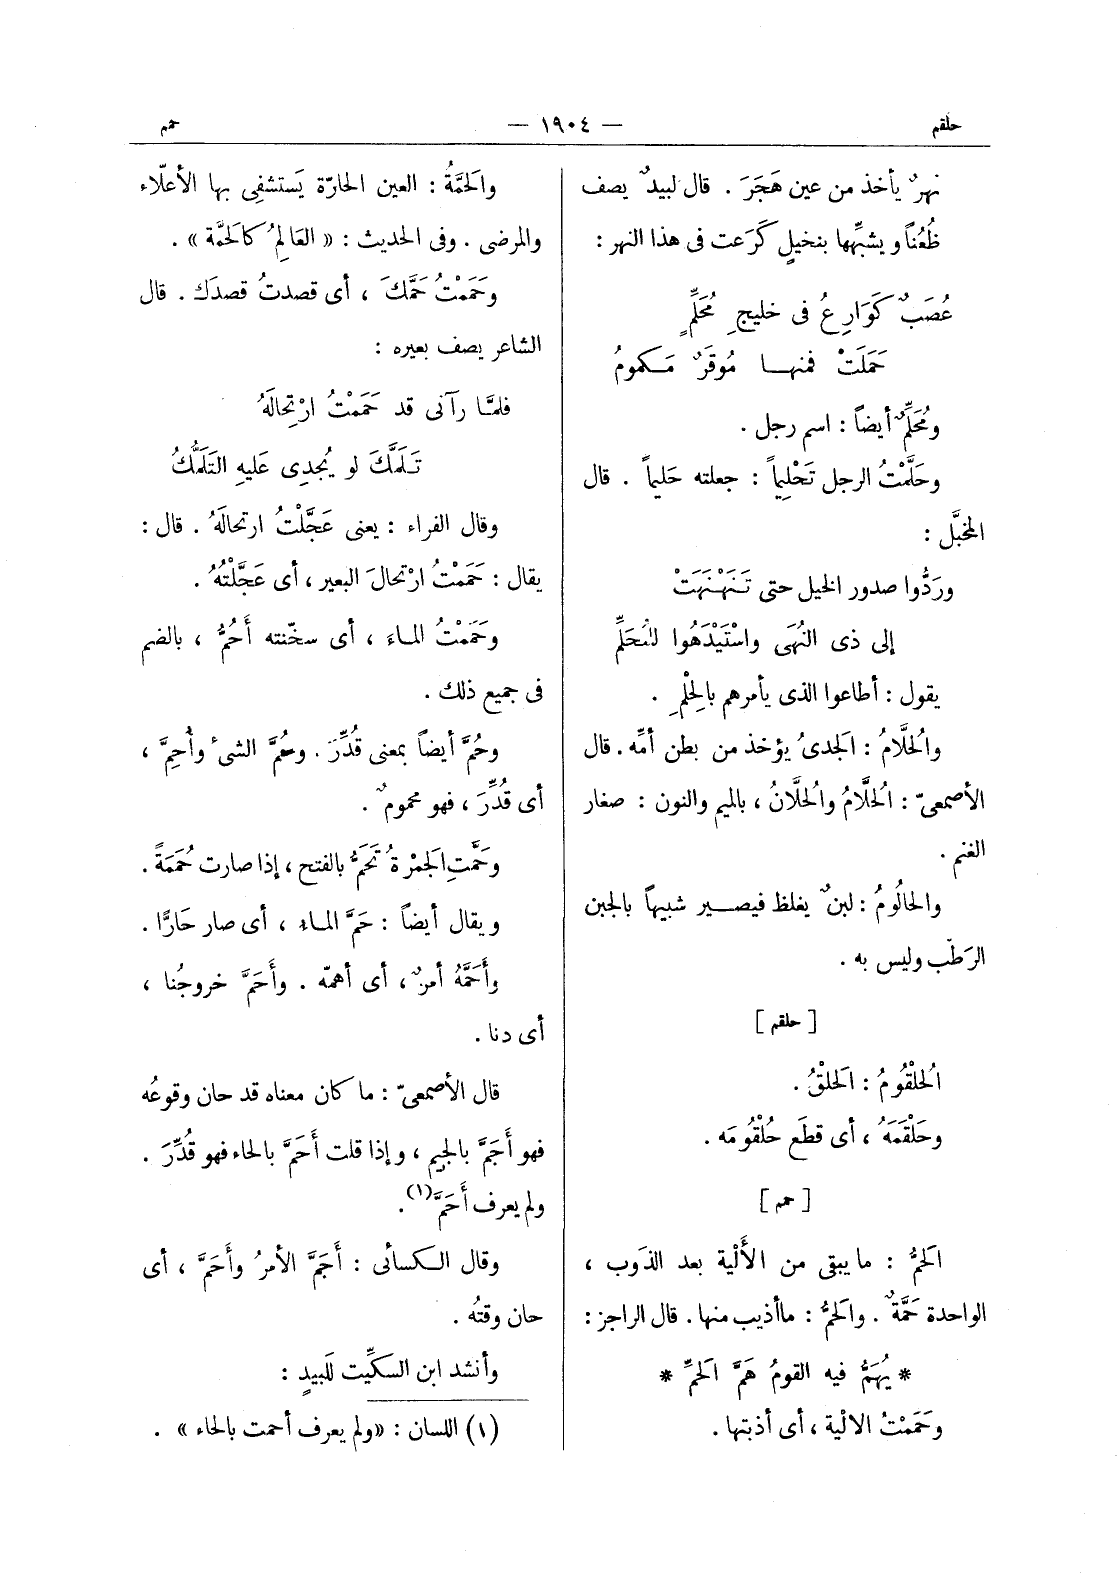 حلقم — ١٩٠٤ — حمم
نهرٌ يأخذ من عين هَجَرَ . قال لبيدٌ يصف
ظُعُناً ويشبِّهها بنخيلٍ كَرَعت فى هذا النهر :
عُصَبٌ كَوَارِعُ فى خليجِ مُحَلِّمٍ
حَمَلَتْ فمنهـا مُوقَرٌ مَكمومُ
ومُحَلِّمٌ أيضاً : اسم رجل .
وحَلَّمْتُ الرجل تَحْلِيماً : جعلته حَليماً . قال
المخبَّل :
ورَدُّوا صدور الخيل حتى تَنَهْنَهَتْ
إلى ذى النُهَى واسْتَيْدَهُوا للمُحَلِّمِ
يقول : أطاعوا الذى يأمرهم بالحِلْمِ .
والُحلَّامُ : الَجدىُ يؤخذ من بطن أمِّه . قال
الأصمعىّ : الُحلَّامُ والُحلَّانُ ، بالميم والنون : صغار
الغنم .
والحالُومُ : لبنٌ يغلظ فيصـير شبيهاً بالجبن
الرَطْب وليس به .
[ حلقم ]
الُحلْقُومُ : الَحلْقُ .
وحَلْقَمَهُ ، أى قطَع حُلْقُومَه .
[ حمم ]
الَحمُّ : ما يبقى من الأَلْية بعد الذَوب ،
الواحدة حَمَّةٌ . والَحمُّ : ماأذيب منها . قال الراجز :
* يُهَمُّ فيه القومُ هَمَّ الَحمِّ *
وحَمَمْتُ الالْية ، أى أذبتها .
والَحمَّةُ : العين الحارّة يَستشفِى بها الأعلّاء
والمرضى . وفى الحديث : « العَالِمُ كالَحمَّة » .
وحَمَمْتُ حَمَّكَ ، أى قصدتُ قصدَك . قال
الشاعر يصف بعيره :
فلمَّـا رآنى قد حَمَمْتُ ارْتِحالَهُ
تَلَمَّكَ لو يُجدِى عَليهِ التَلَمُّكُ
وقال الفراء : يعنى عَجَّلْتُ ارتحالَهُ . قال :
يقال : حَمَمْتُ ارْتحالَ البعير ، أى عَجَّلْتُهُ .
وحَمَمْتُ المـاءَ ، أى سخّنته أَحُمُّ ، بالضم
فى جميع ذلك .
وحُمَّ أيضاً بمعنى قُدِّرَ . وحُمَّ الشىءُ وأُحِمَّ ،
أى قُدِّرَ ، فهو محمومٌ .
وحَمَّتِ الَجمْرةُ تَحَمُّ بالفتح ، إذا صارت حُمَمَةً .
ويقال أيضاً : حَمَّ المـاء ، أى صار حَارًّا .
وأَحَمَّهُ أمرٌ ، أى أهمّه . وأَحَمَّ خروجُنا ،
أى دنا .
قال الأصمعىّ : ما كان معناه قد حان وقوعُه
فهو أَجَمَّ بالجيم ، وإذا قلت أَحَمَّ بالحاء فهو قُدِّرَ .
ولم يعرف أَحَمَّ (١) .
وقال الـكسائى : أَجَمَّ الأمرُ وأَحَمَّ ، أى
حان وقتُه .
وأنشد ابن السكِّيت لَلبيدٍ :
(١) اللسان : «ولم يعرف أحمت بالحاء » .